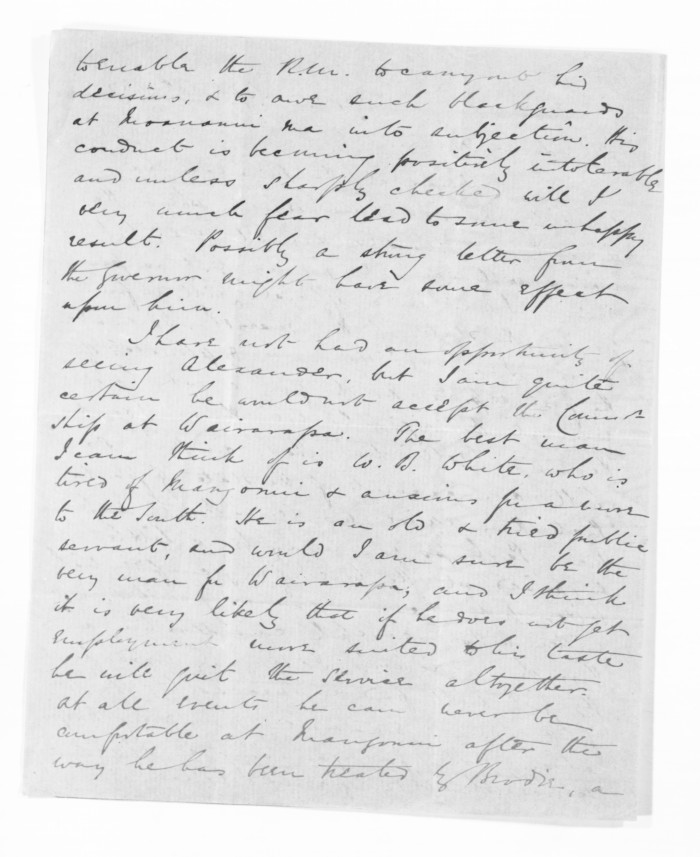 to enable the R.M. to carry out his
decisions, & to awe such blackguards
as Moananui ma into subjection. His
conduct is becoming positively intolerable
and unless sharply checked will I
very much fear lead to some unhappy
result. Possibly a strong letter from
the Governor might have some effect
upon him.
I have not had an opportunity of
seeing Alexander, but I am quite
certain he would not accept the
ship at Wairarapa. The best man
I can think of is W. B. White, who is
tired of Mangonui & anxious for a move
to the South. He is an old & tried public
servant, and would I am sure be the
very man for Wairarapa; and I think
it is very likely that if he does not get
employment more suited to his taste
he will quit the service altogether.
At all events he can never be
comfortable at Mangonui after the
way he has been treated by Brodie, a